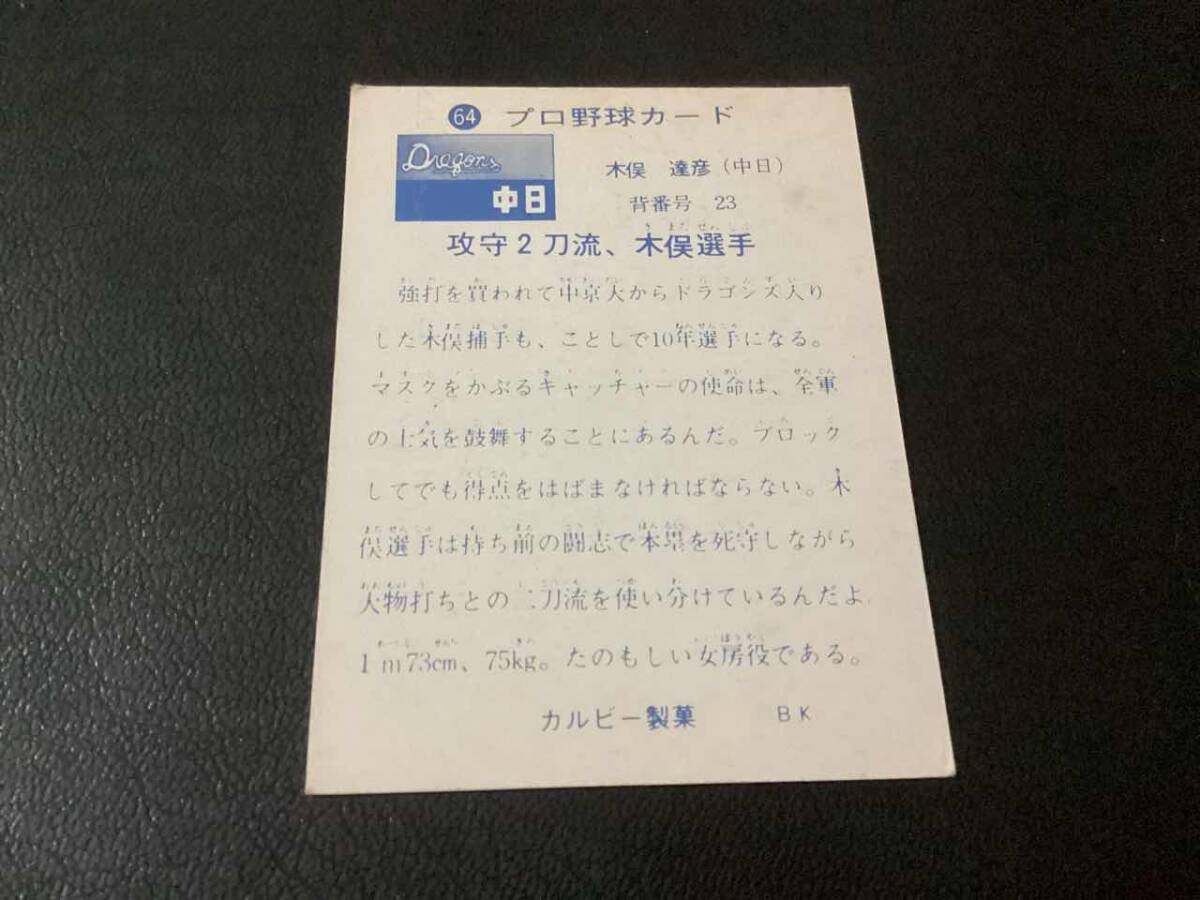 64 プロ野球カード
Dragons
中日
木俣 達彦（中日）
背番号 23
攻守2刀流、木俣選手
強打を買われて中京大からドラゴンズ入り
した木俣捕手も、ことしで10年選手になる。
マスクをかぶるキャッチャーの使命は、全軍
の士気を鼓舞することにあるんだ。ブロック
してでも得点をはばまなければならない。木
俣選手は持ち前の闘志で本塁を死守しながら
大物打ちとの二刀流を使い分けているんだよ
1m73cm、75kg。たのもしい女房役である。
カルビー製菓 BK